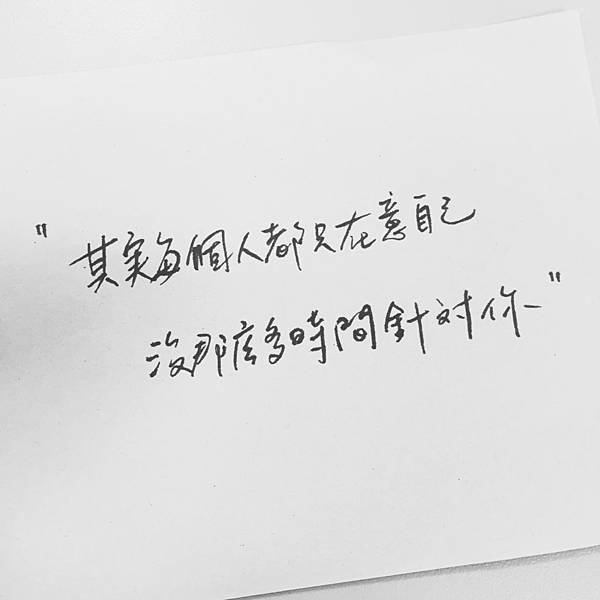 "其实每個人都只在意自己
沒那麼多時間針對你"